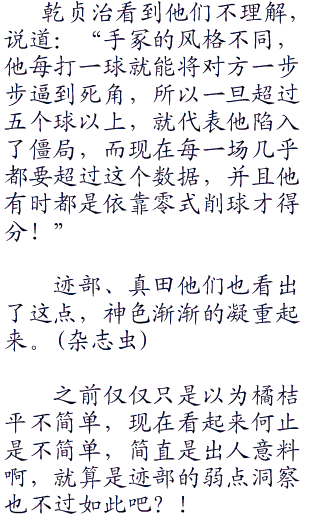 乾贞治看到他们不理解，
说道：“手冢的风格不同，
他每打一球就能将对方一步
步逼到死角，所以一旦超过
五个球以上，就代表他陷入
了僵局，而现在每一场几乎
都要超过这个数据，并且他
有时都是依靠零式削球才得
分！”
迹部、真田他们也看出
了这点，神色渐渐的凝重起
来。(杂志虫)
之前仅仅只是以为橘桔
平不简单，现在看起来何止
是不简单，简直是出人意料
啊，就算是迹部的弱点洞察
也不过如此吧？！